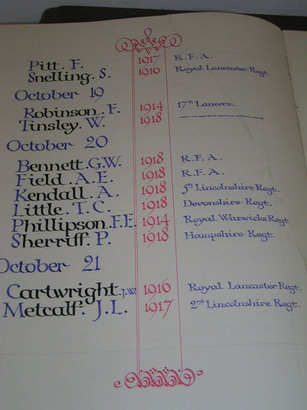 Pitt. F. 1917 R.F.A.
Snelling. S. 1916 Royal Lancaster Regt.
October 19
Robinson. F. 1914 17th Lancers.
Tinsley. W. 1918
October 20
Bennett. G.W. 1918 R.F.A.
Field. A.E. 1918 R.F.A.
Kendall. A. 1918 5th Lincolnshire Regt.
Little. T.C. 1918 Devonshire Regt.
Phillipson. F.E. 1914 Royal Warwicks Regt.
Sherriff. P. 1918 Hampshire Regt.
October 21
Cartwright. J.W. 1916 Royal Lancaster Regt.
Metcalf. J.L. 1917 2nd Lincolnshire Regt.